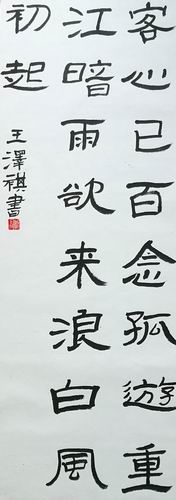 客心已百念孤遊重
江暗雨欲来浪白風
初起
王澤祺書